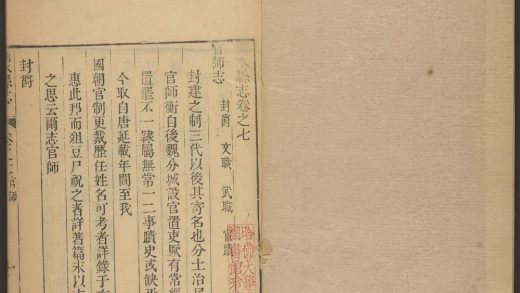 水縣志卷之七
官師志
封爵 文職 武職
封建之制三代以後其寄名也分土治民
官師衡自後魏分城設官置吏厥有常經
置罷不一隷屬無常一二事蹟史或缺
今取自唐延載年間至我
國朝官制更裁歷任姓名可考者詳錄于
惠此邦而俎豆尸祝之者詳著篇末以
之思云爾志官師
封爵
官師
哈佛大學
圖書館珍